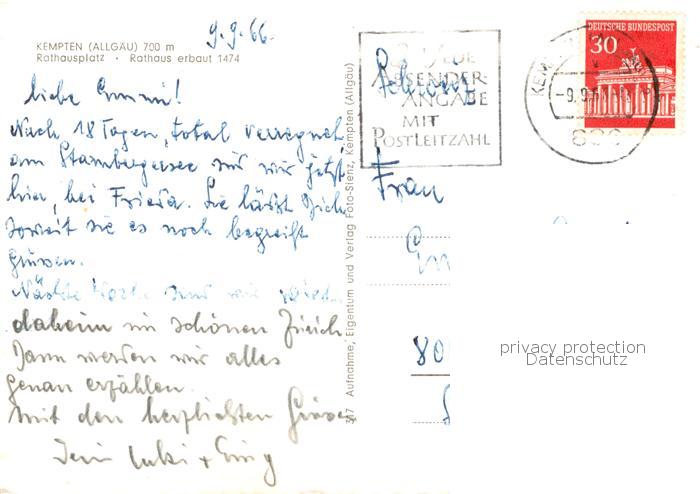 9.9.66.
KEMPTEN (ALLGÄU) 700 m
Rathausplatz · Rathaus erbaut 1474
liebe Emmi!
Nach 18 Tagen, total verregnet
am Starnbergersee sind wir jetzt
hier, bei Frieda. Sie lässt Dich
soweit sie es noch begreift
grüssen.
Nächste Woche sind wir wieder
daheim im schönen Zürich
Dann werden wir alles
genau erzählen.
Mit den herzlichsten Grüssen
+
347 Aufnahme, Eigentum und Verlag Foto-Sienz, Kempten (Allgäu)
NEUE
ABSENDER-
ANGABE
MIT
POSTLEITZAHL
DEUTSCHE BUNDESPOST
30
-9.9.6
Frau
80
privacy protection
Datenschutz